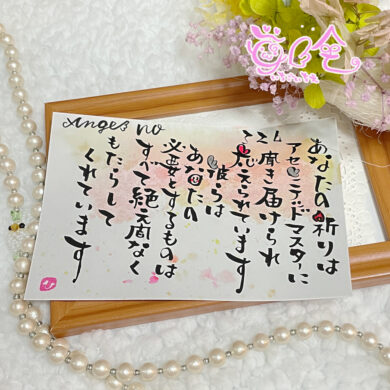 Anges no
224
あなたの祈りは
アセンディッドマスターに
聞き届けられ
応えられています
彼らは
あなたの
必要とするものは
すべて絶え間なく
もたらして
くれています